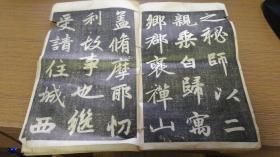 之秘師以二
親垂白歸寓
鄉郡襄禪山
蓋脩摩耶忉
利故事也繼
受請住城西